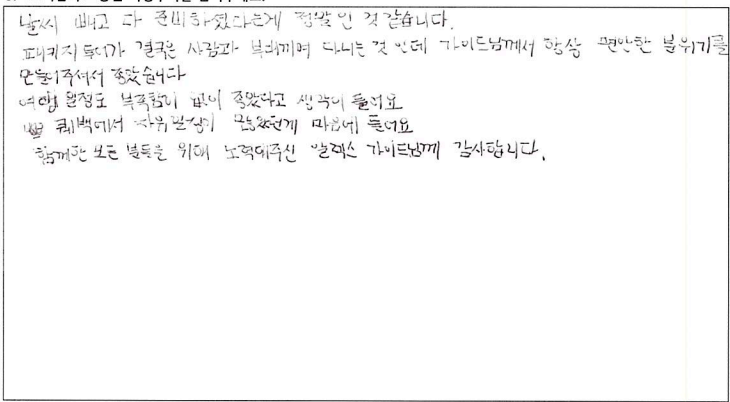 날씨 빼고 다 준비하셨다는게 정말인 것 같습니다.
패키지 투어가 결국은 사람과 부대끼며 다니는 것 인데 가이드님께서 항상 편안한 분위기를
만들어주셔서 좋았습니다
여행 일정도 부족함이 없이 좋았다고 생각이 들어요
퀘백에서 자유일정이 많았던게 마음에 들어요
함께한 모든 분들을 위해 노력해주신 알렉스 가이드님께 감사합니다.